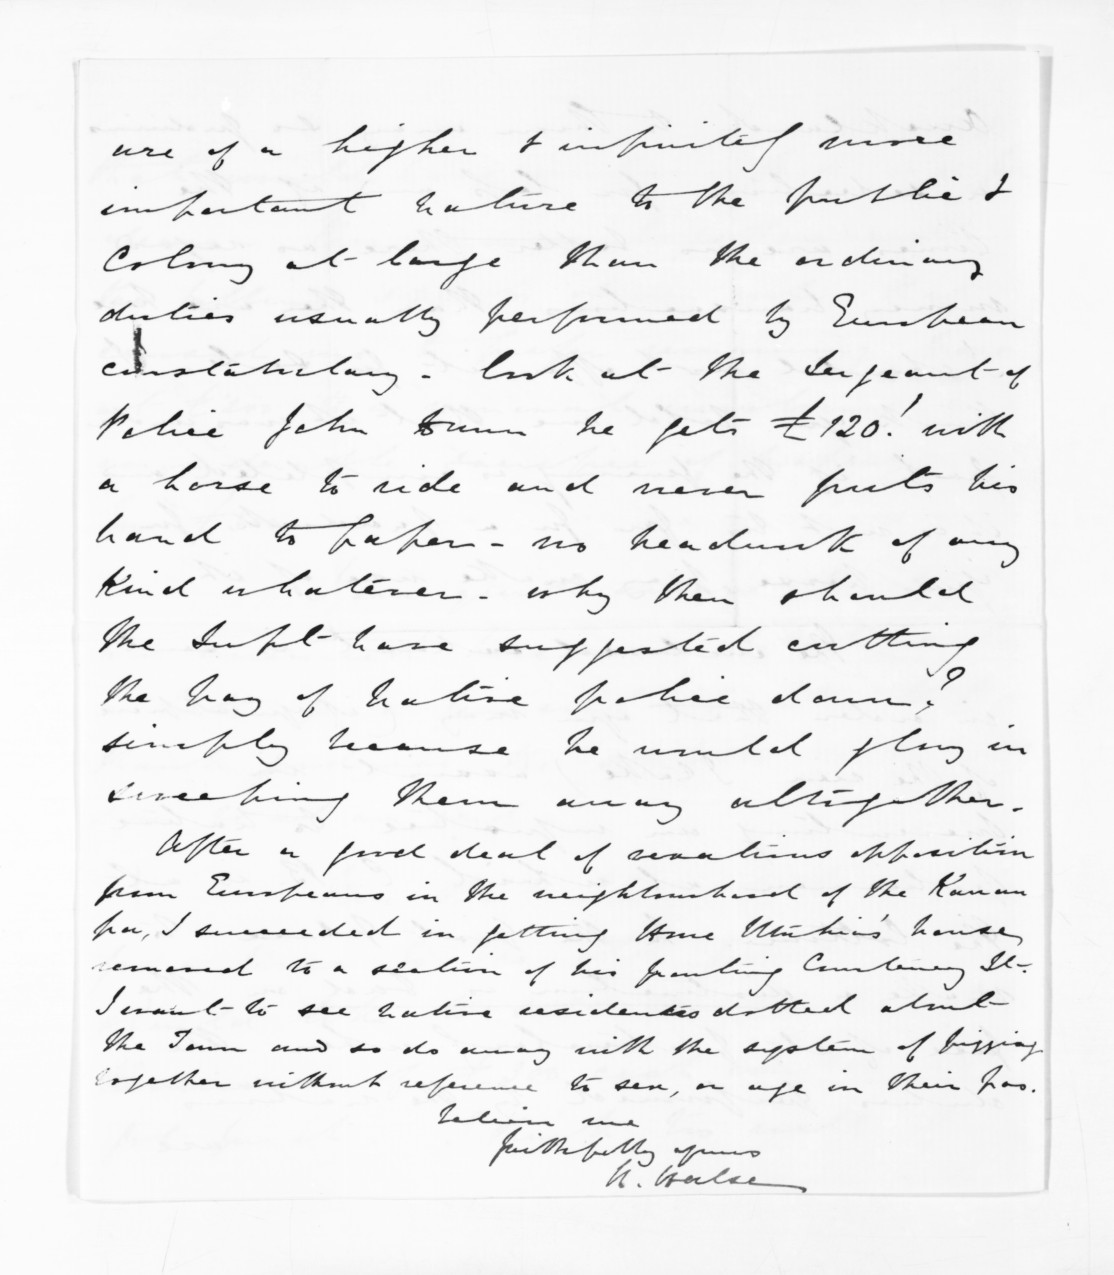 are of a higher & infinitely more
important nature to the public &
Colony at large than the ordinary
duties usually performed by European
constabulary - look at the Sergeant of
Police John Dunn he gets £120! with
a horse to ride and never puts his
hand to paper - no headwork of any
kind whatever - why then should
the Supt have suggested cutting
the pay of native police down?
simply because he would glory in
sweeping them away altogether.
After a good deal of vexatious opposition
from Europeans in the neighbourhood of the Kawau
pa, I succeeded in getting Hone house
removed to a section of his fronting Courtenay St.
I want to see native residences dotted about
the Town and so do away with the system of pigging
together without reference to sex, or age in their pas.
Believe me
faithfully yours
H. Halse